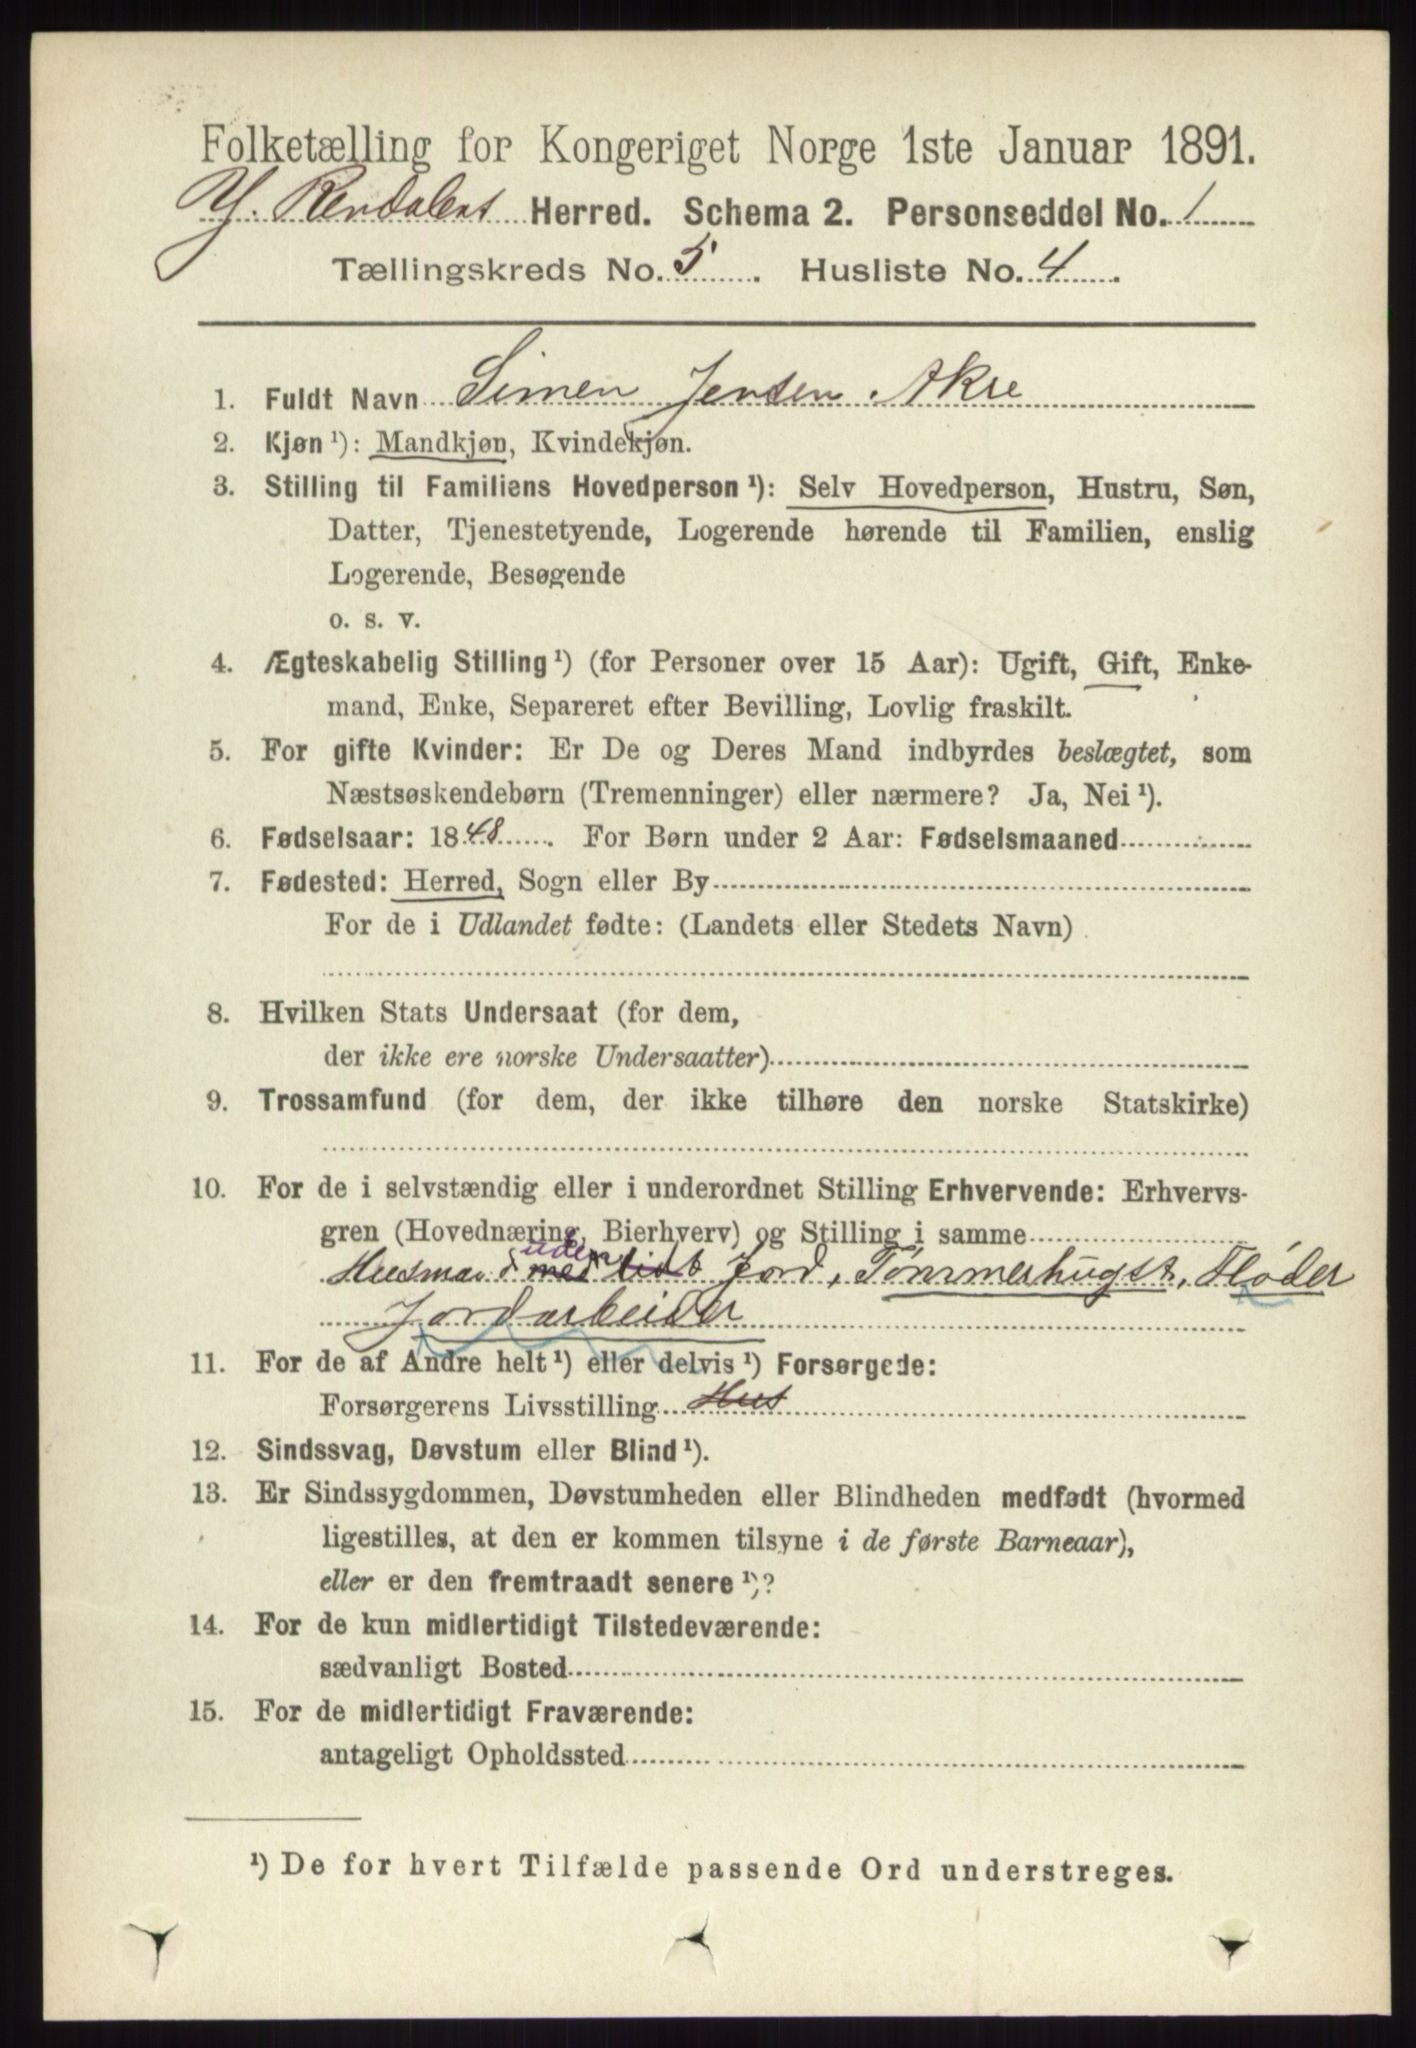 Folketælling for Kongeriget Norge 1ste Januar 1891.
Y. Rendalens Herred. Schema 2. Personseddel No. 1
Tællingskreds No. 5. Husliste No. 4.
1. Fuldt Navn Simen Jensen Akre
2. Kjøn ¹): Mandkjøn, Kvindekjøn.
3. Stilling til Familiens Hovedperson ¹): Selv Hovedperson, Hustru, Søn,
Datter, Tjenestetyende, Logerende hørende til Familien, enslig
Logerende, Besøgende
o. s. v.
4. Ægteskabelig Stilling ¹) (for Personer over 15 Aar): Ugift, Gift, Enke-
mand, Enke, Separeret efter Bevilling, Lovlig fraskilt.
5. For gifte Kvinder: Er De og Deres Mand indbyrdes beslægtet, som
Næstsøskendebørn (Tremenninger) eller nærmere? Ja, Nei ¹).
6. Fødselsaar: 1848. For Børn under 2 Aar: Fødselsmaaned
7. Fødested: Herred, Sogn eller By
For de i Udlandet fødte: (Landets eller Stedets Navn)
8. Hvilken Stats Undersaat (for dem,
der ikke ere norske Undersaatter)
9. Trossamfund (for dem, der ikke tilhøre den norske Statskirke)
10. For de i selvstændig eller i underordnet Stilling Erhvervende: Erhvervs-
gren (Hovednæring, Bierhverv) og Stilling i samme
uden
Husmand med lidt Jord, Tømmerhugst, Fløder
Jordarbeider
11. For de af Andre helt ¹) eller delvis ¹) Forsørgede:
Forsørgerens Livsstilling Hus
12. Sindssvag, Døvstum eller Blind ¹).
13. Er Sindssygdommen, Døvstumheden eller Blindheden medfødt (hvormed
ligestilles, at den er kommen tilsyne i de første Barneaar),
eller er den fremtraadt senere ¹)?
14. For de kun midlertidigt Tilstedeværende:
sædvanligt Bosted
15. For de midlertidigt Fraværende:
antageligt Opholdssted
¹) De for hvert Tilfælde passende Ord understreges.